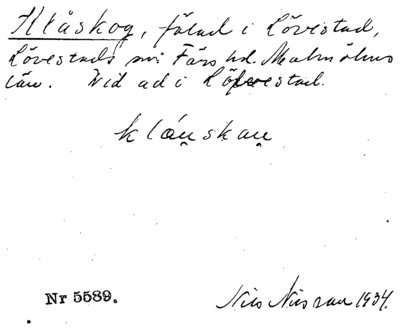 Klåskog, fälad i Lövestad,
Lövestads sn Färs hd. Malmöhus
län. Vid ad i Löfvestad.
klåu̯skau̯
Nr 5589.
Nils Nilsson 1934.